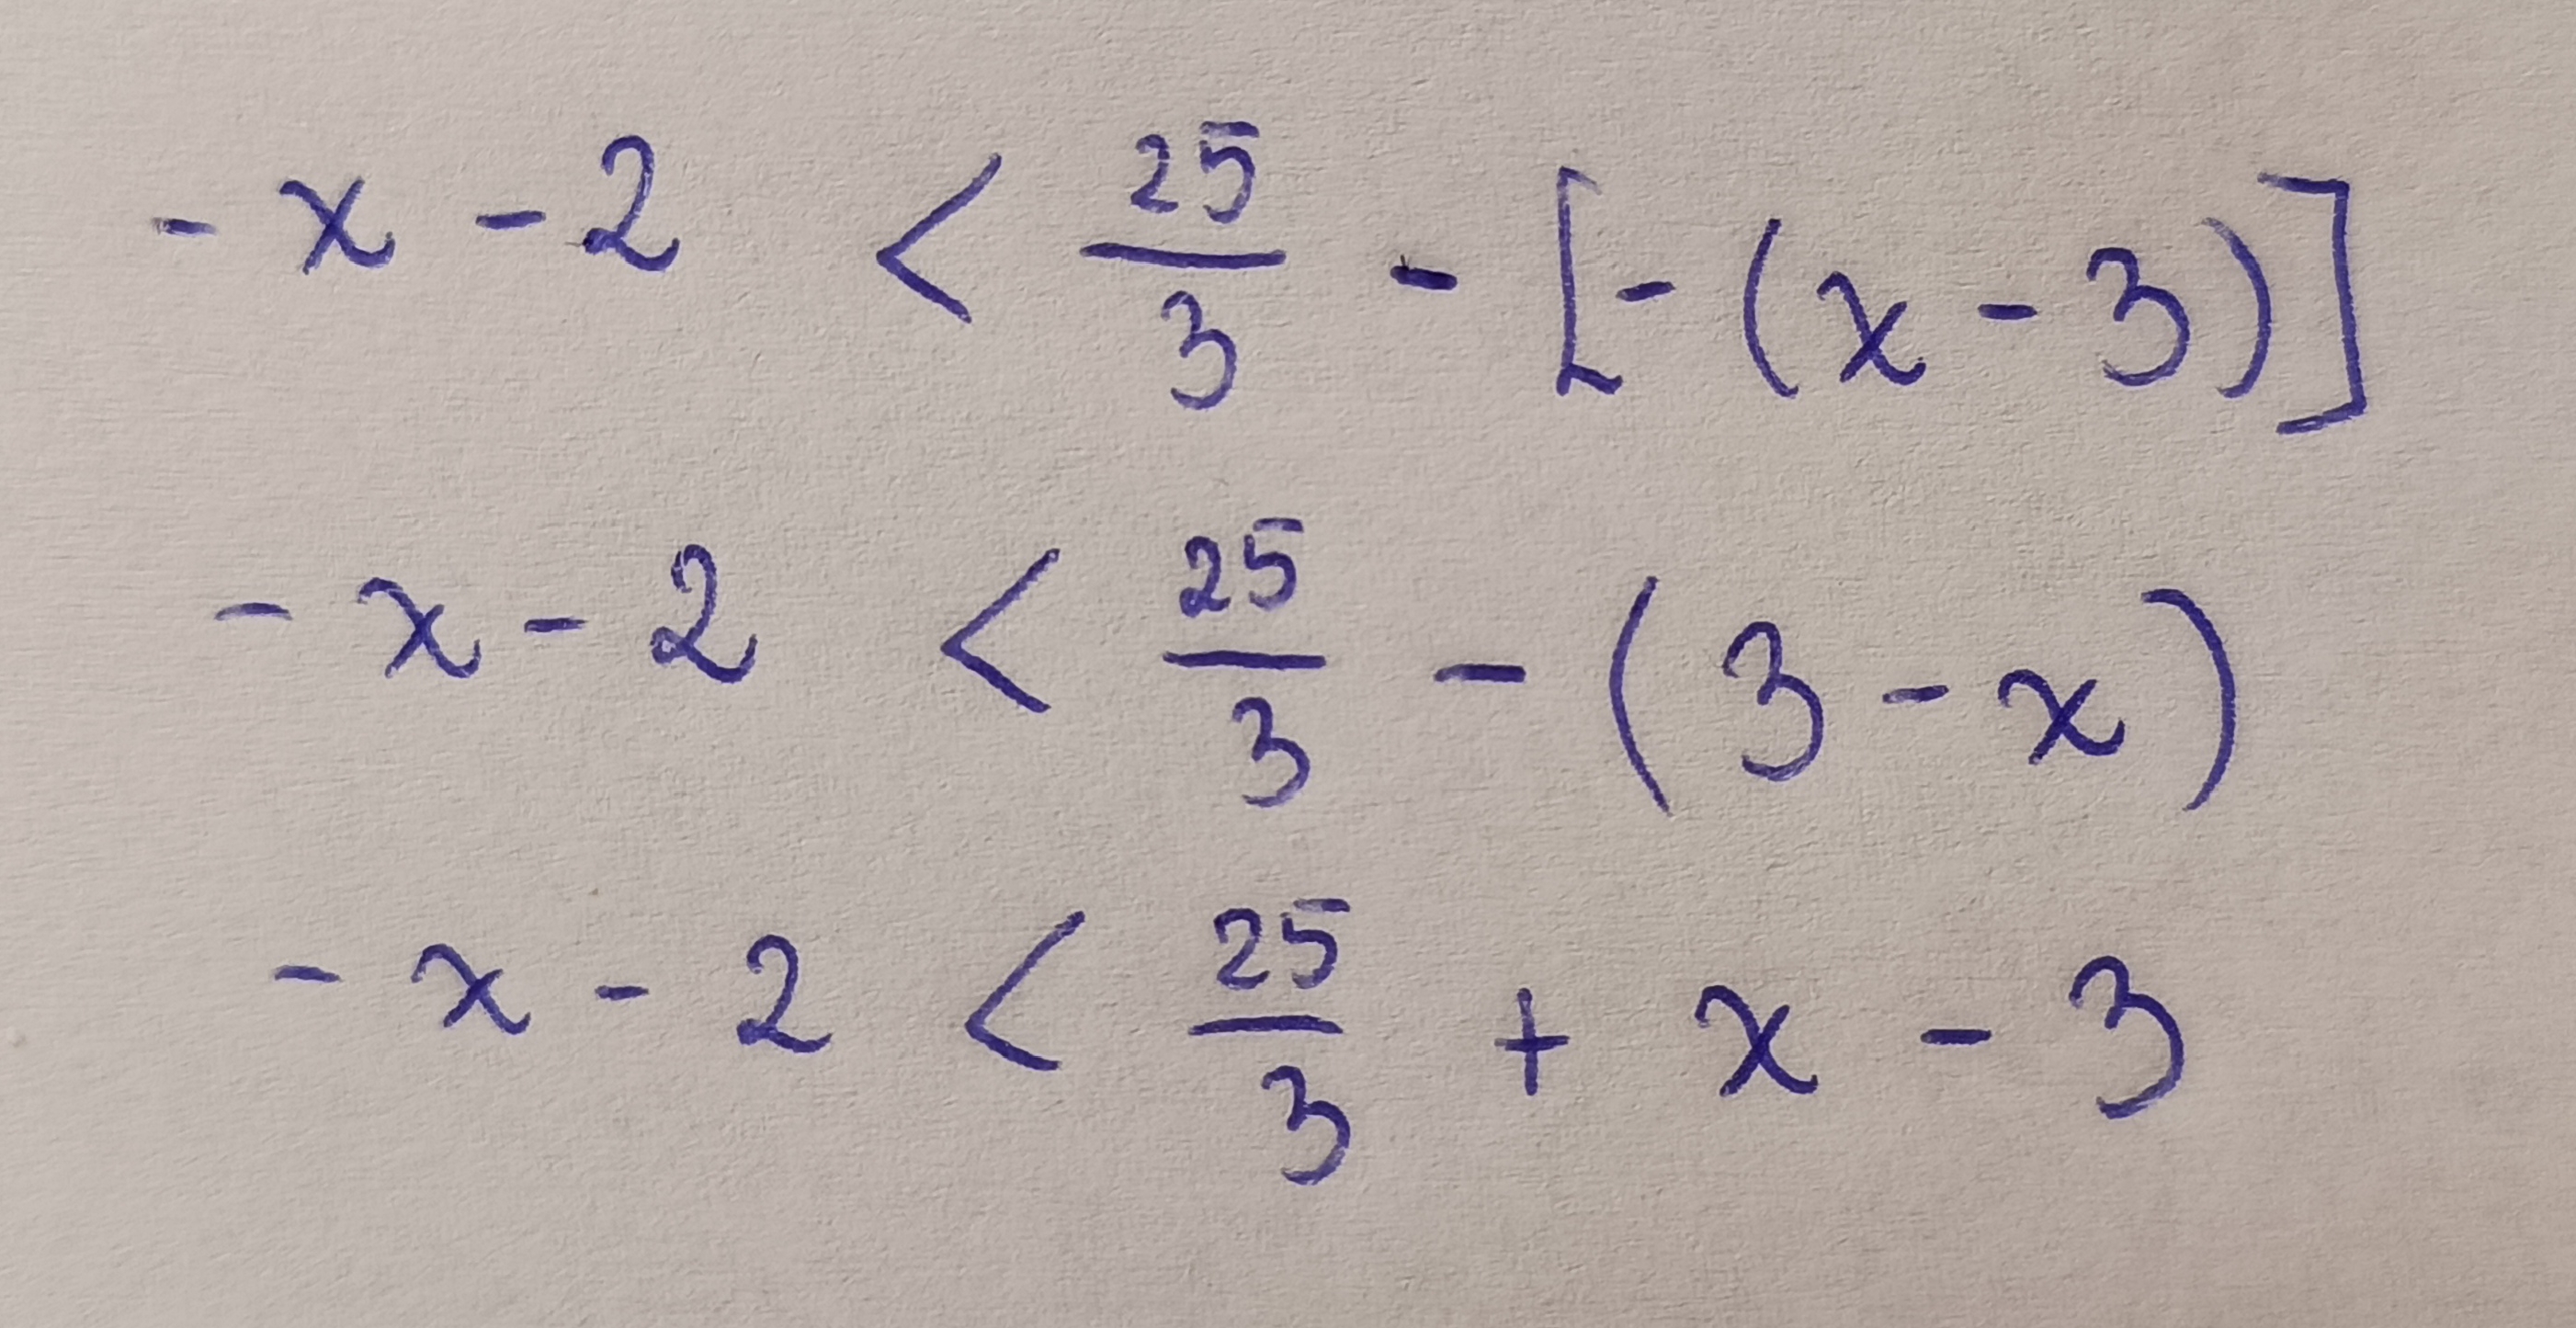 -x - 2 < 25/3 - [-(x - 3)]
-x - 2 < 25/3 - (3 - x)
-x - 2 < 25/3 + x - 3